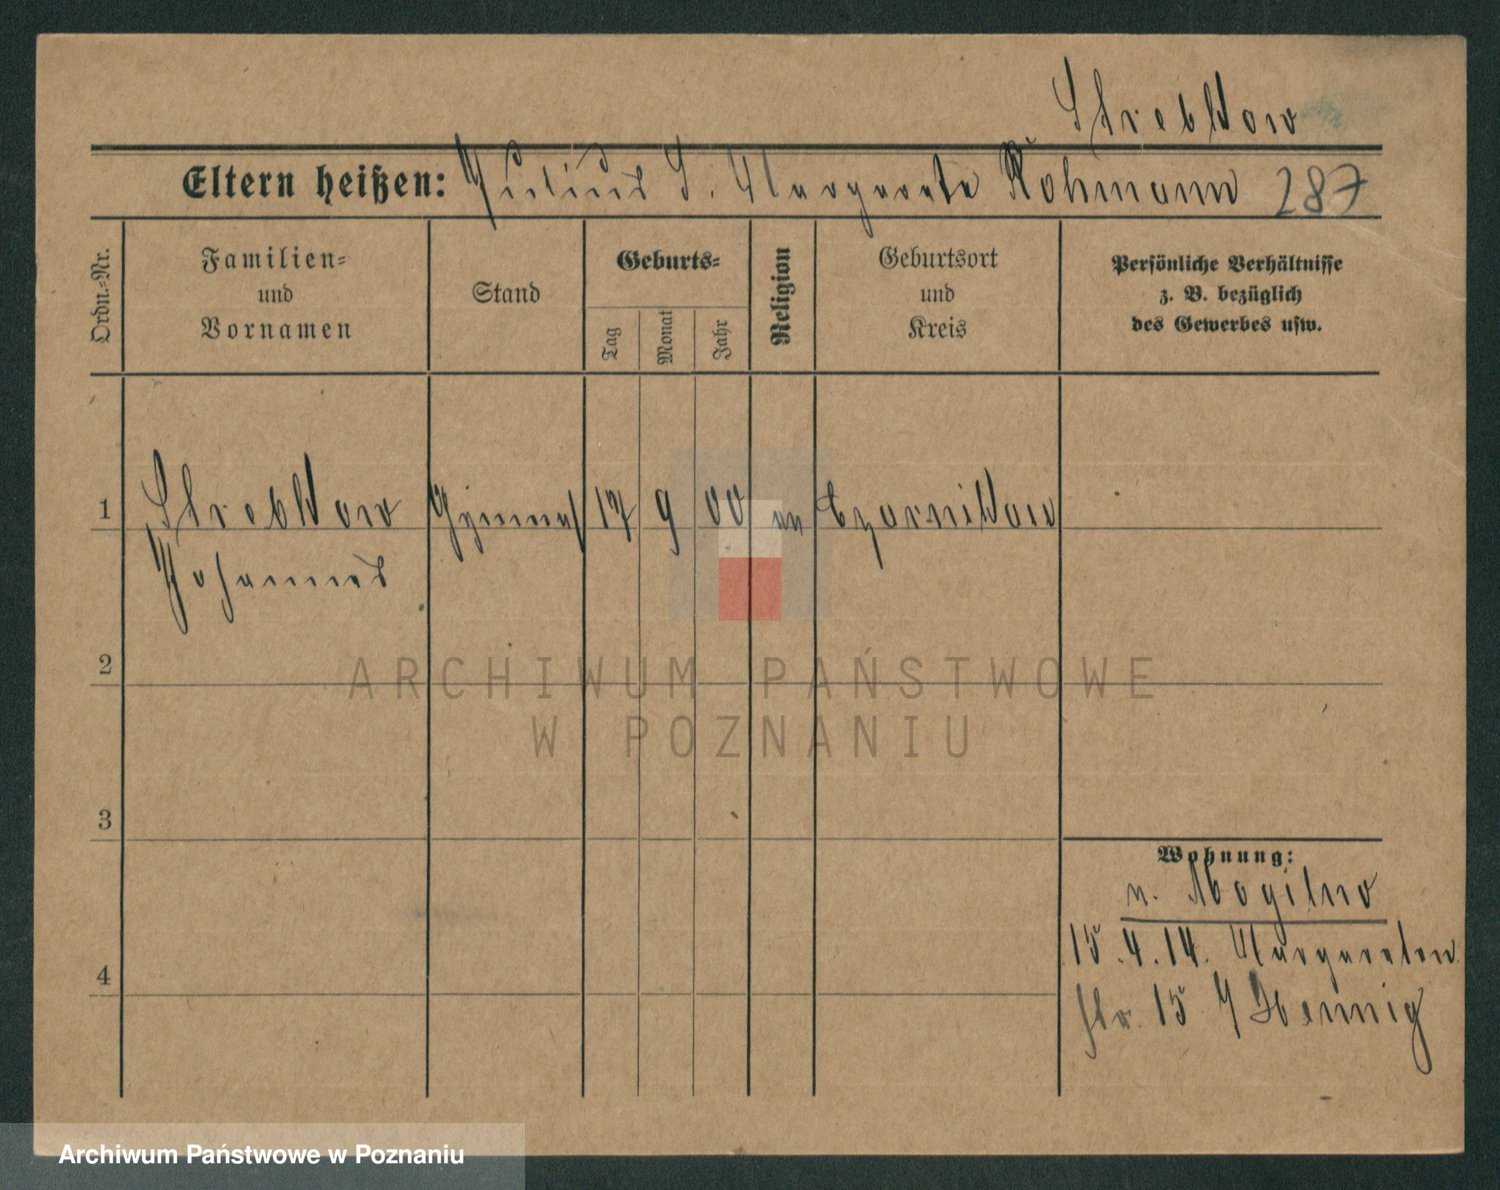 Strebkow
Eltern heißen: Julius S. Margarete Rohmann 287
Ordn.-Nr.
Familien- und Vornamen
Stand
Geburts-
Tag
Monat
Jahr
Religion
Geburtsort und Kreis
Persönliche Verhältnisse
z. B. bezüglich
des Gewerbes usw.
1 Strebkow Gymnas 17 9 00 ev Czarnikow
Johannes
2
ARCHIWUM PAŃSTWOWE
W POZNANIU
3
Wohnung:
n. Mogilno
15.4.14. Margareten
4
str. 15 Hennig
Archiwum Państwowe w Poznaniu